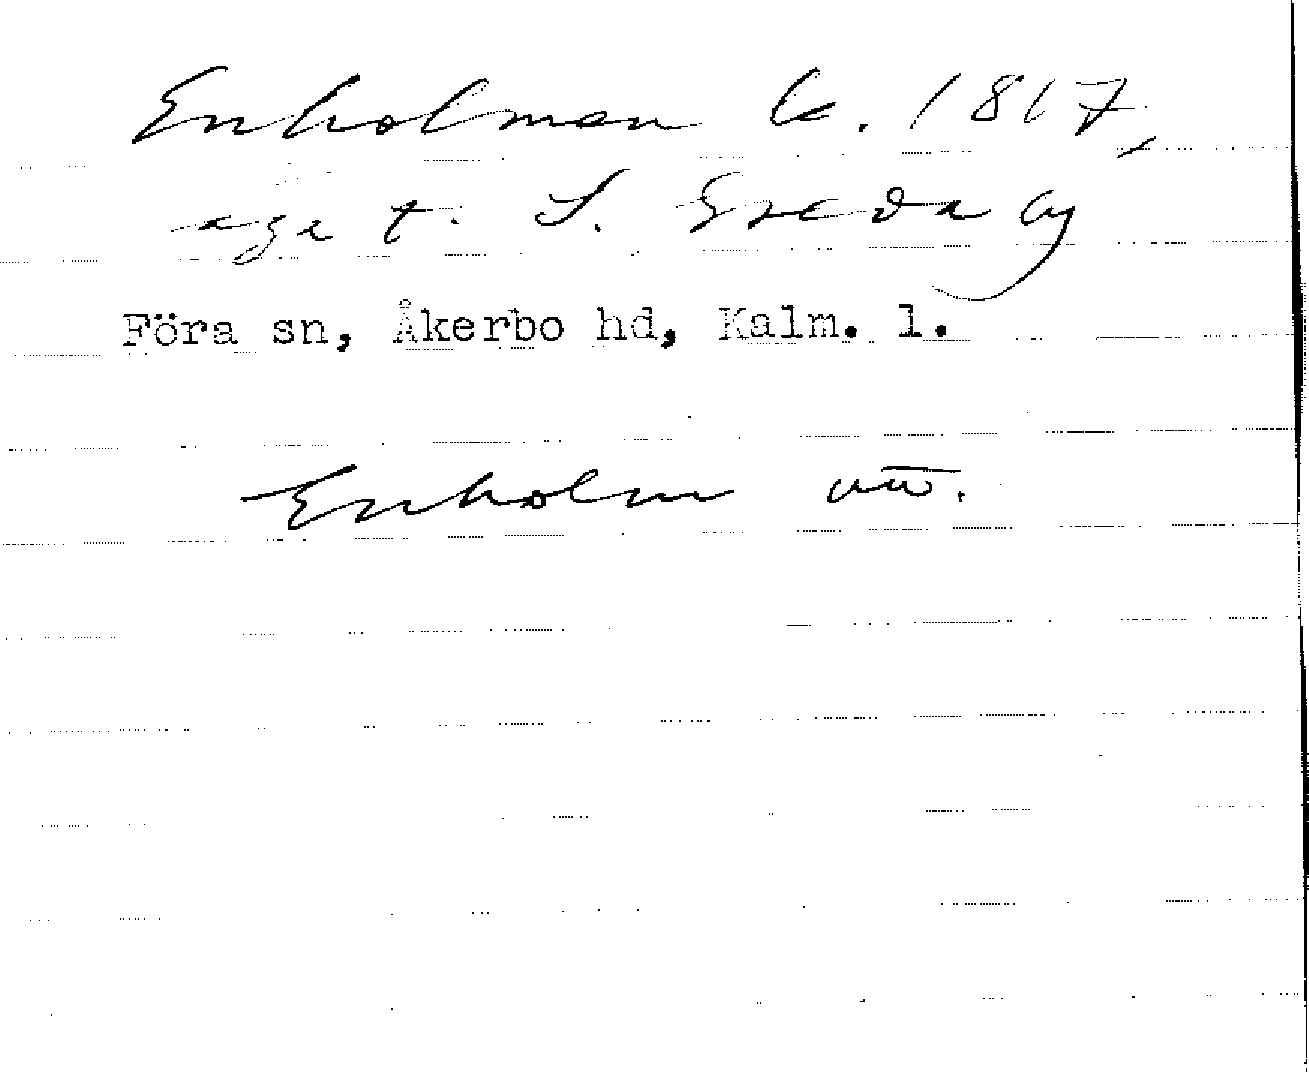 Enholmen k. 1817,
äga t. S. Greda by
Föra sn, Åkerbo hd, Kalm. l.
Enholm utt.